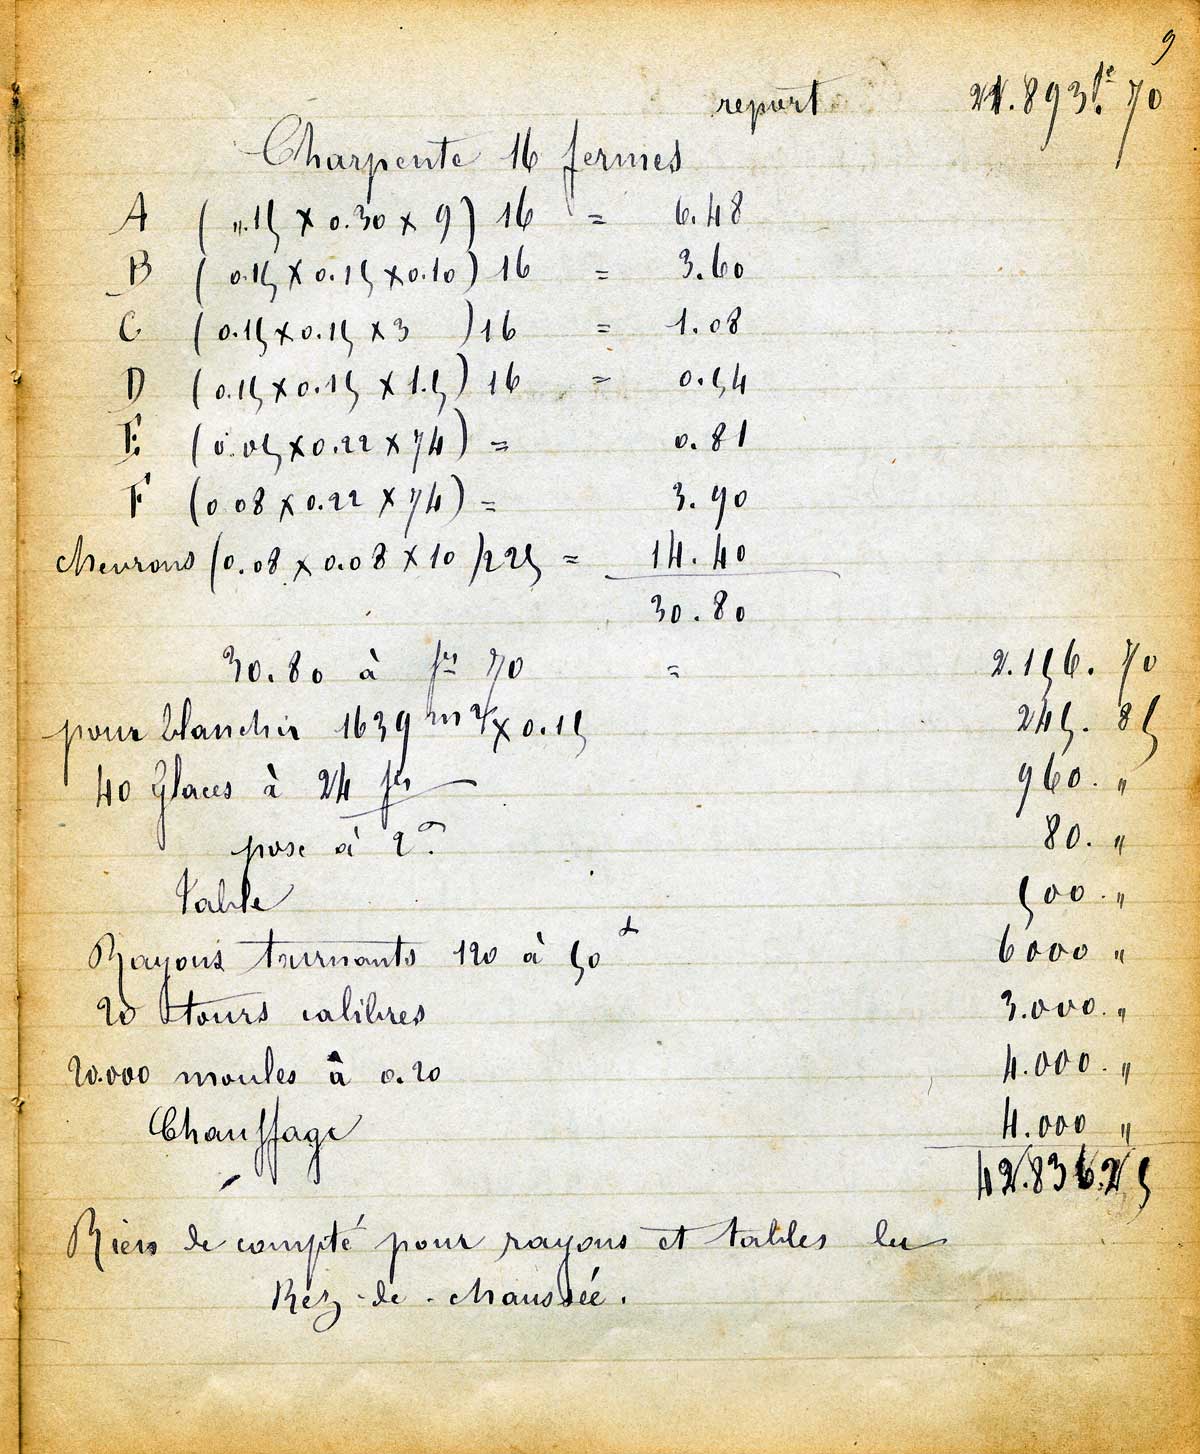 9
report 21.893fc. 70
Charpente 16 fermes
A ( ".15 × 0.30 × 9) 16 = 6.48
B ( 0.15 × 0.15 × 0.10) 16 = 3.60
C (0.15 × 0.15 × 3 ) 16 = 1.08
D (0.15 × 0.15 × 1.5) 16 = 0.54
E (0.05 × 0.22 × 74) = 0.81
F (0.08 × 0.22 × 74) = 3.90
chevrons (0.08 × 0.08 × 10 )225 = 14.40
30.80
30.80 à frs 70 = 2.156. 70
pour blanchir 1639 m2 × 0.15 245. 85
40 Glaces à 24 frs 960. "
pose à 2. 80. "
Table 500. "
Rayons turnants 120 à 50 6000 "
20 tours calibres 3.000. "
20.000 moules à 0.20 4.000. "
Chauffage 4.000 "
42.836.25
Rien de compté pour rayons et tables au
Rez-de-chaussée.